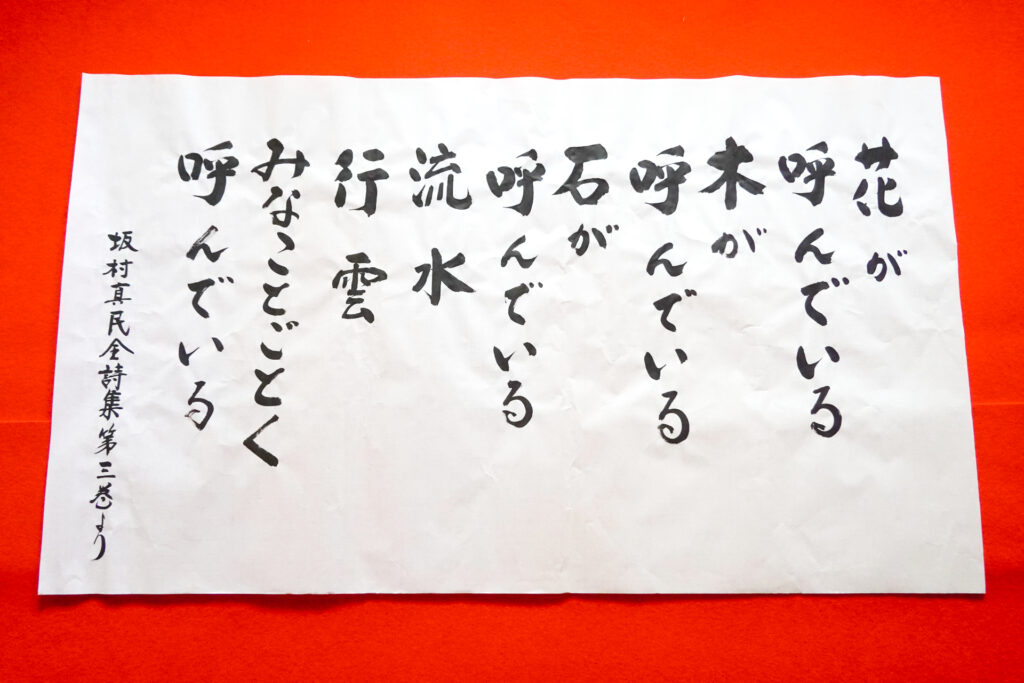 花が
呼んでいる
木が
呼んでいる
石が
呼んでいる
流水
行雲
みなことごとく
呼んでいる
坂村真民全詩集第三巻より